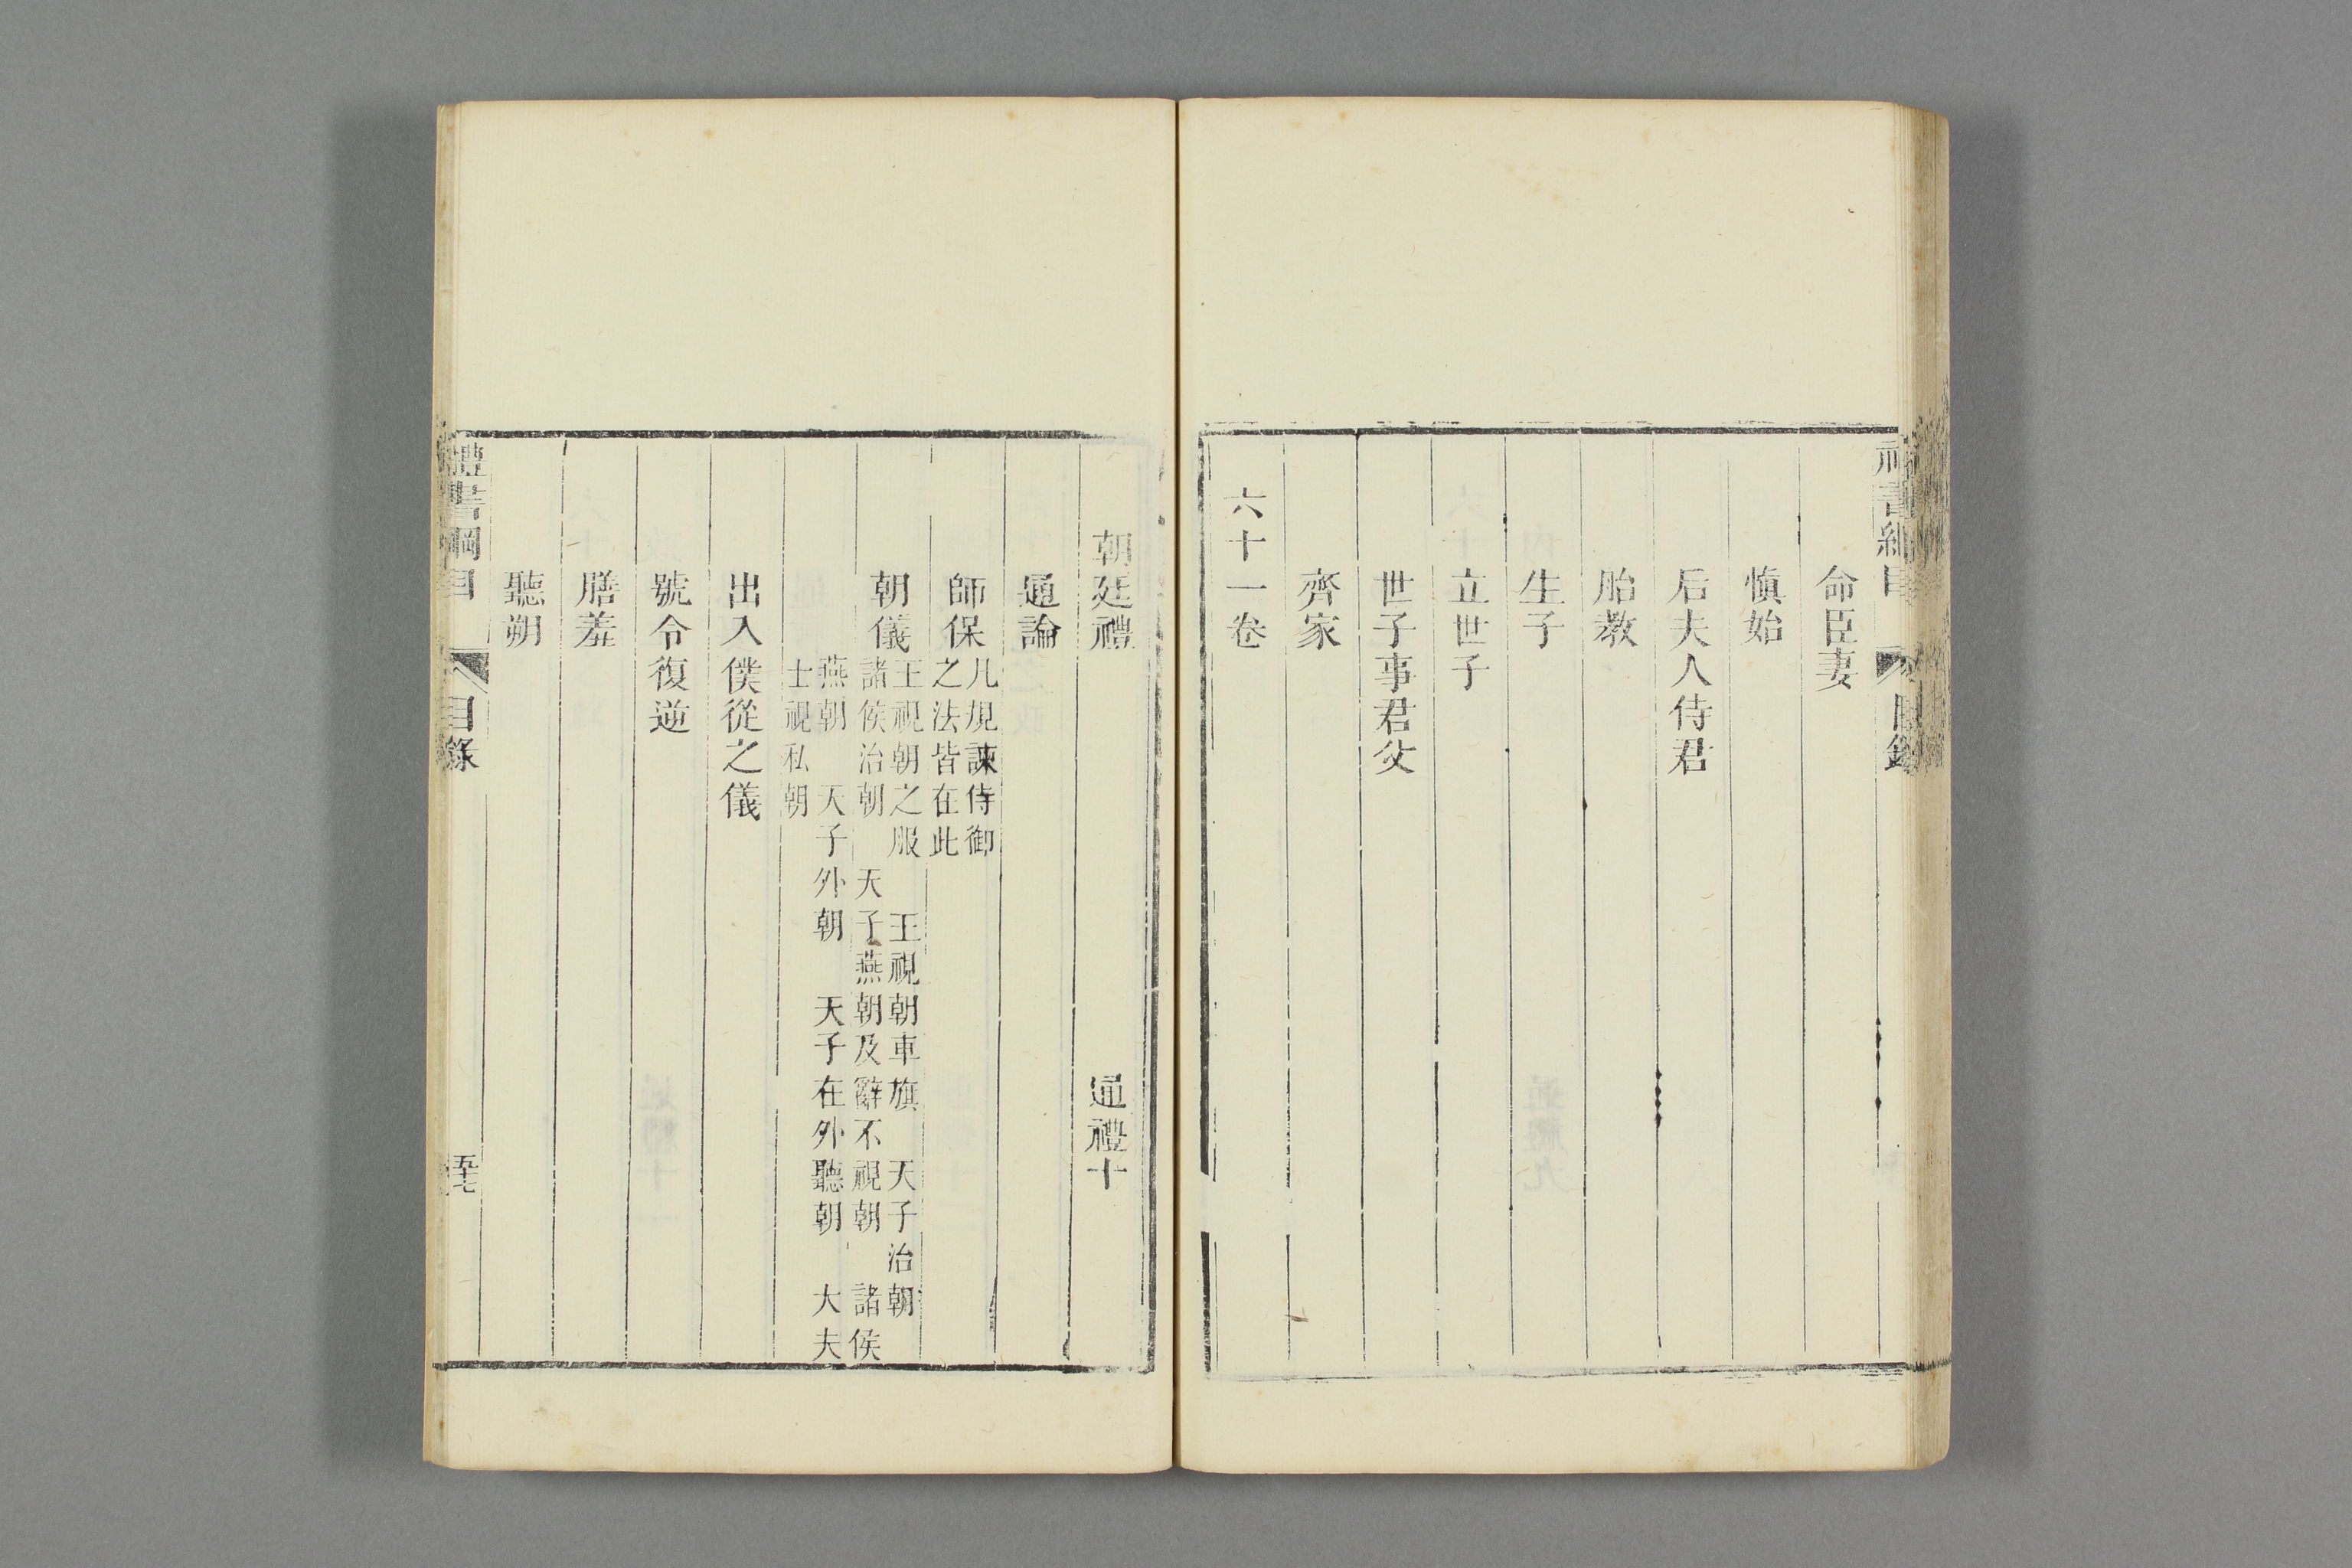 命臣妻
慎始
后夫人侍君
胎教
生子
立世子
世子事君父
齊家
六十一卷
朝廷禮 通禮十
通論
師保 凡規諫侍御
之法皆在此
朝儀 王視朝之服 王視朝車旗 天子治朝
諸侯治朝 天子燕朝及辭不視朝 諸侯
燕朝 天子外朝 天子在外聽朝 大夫
士視私朝
出入僕從之儀
號令復逆
膳羞
聽朔
禮書綱目 目錄